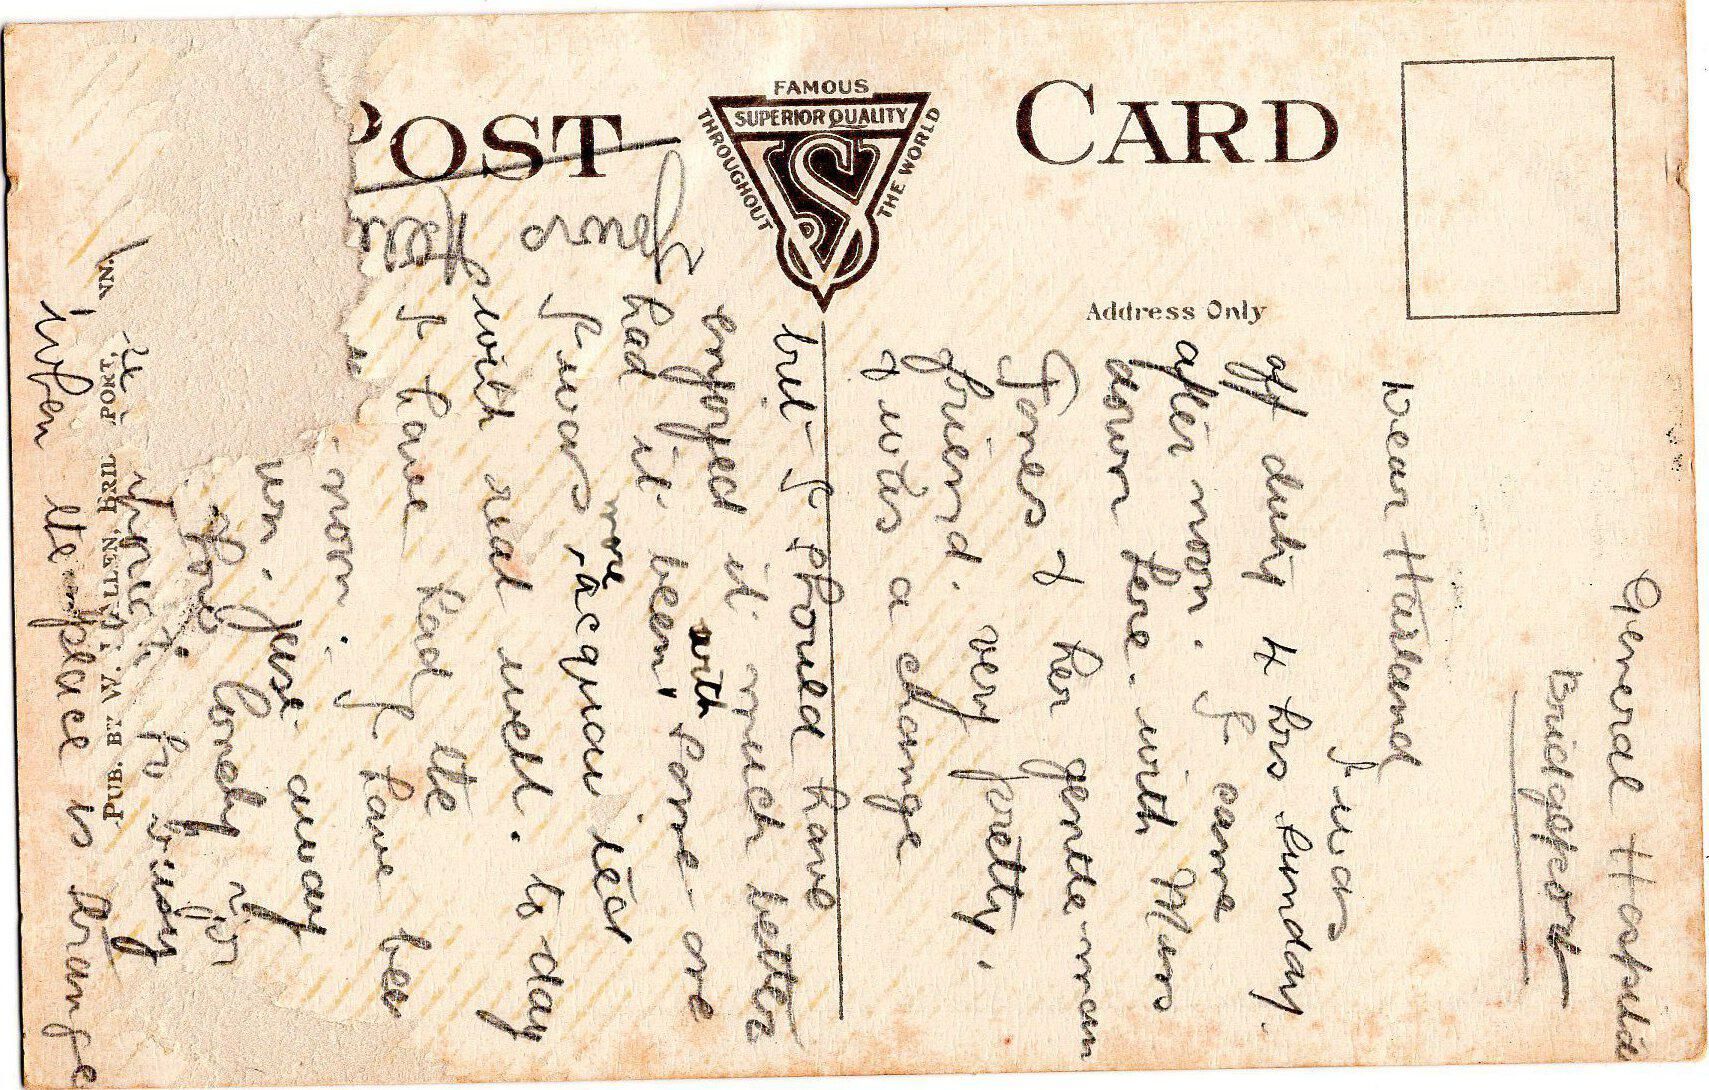 POST CARD
FAMOUS
SUPERIOR QUALITY
THROUGHOUT
THE WORLD
Address Only
PUB. BY W.
General Hospital
Bridgeport
Dear Harland
I was
off duty 4 hrs Sunday.
after noon. I came
down here. with Miss
Jones & her gentleman
friend. very pretty.
& uts a change
but I should have
enjoyed it much better
had it been with some-one
I was more acquainted
with real well. to day
I have had the
noon. I have been
un. Just away
lonely
for
busy
when the place is strange
Yours